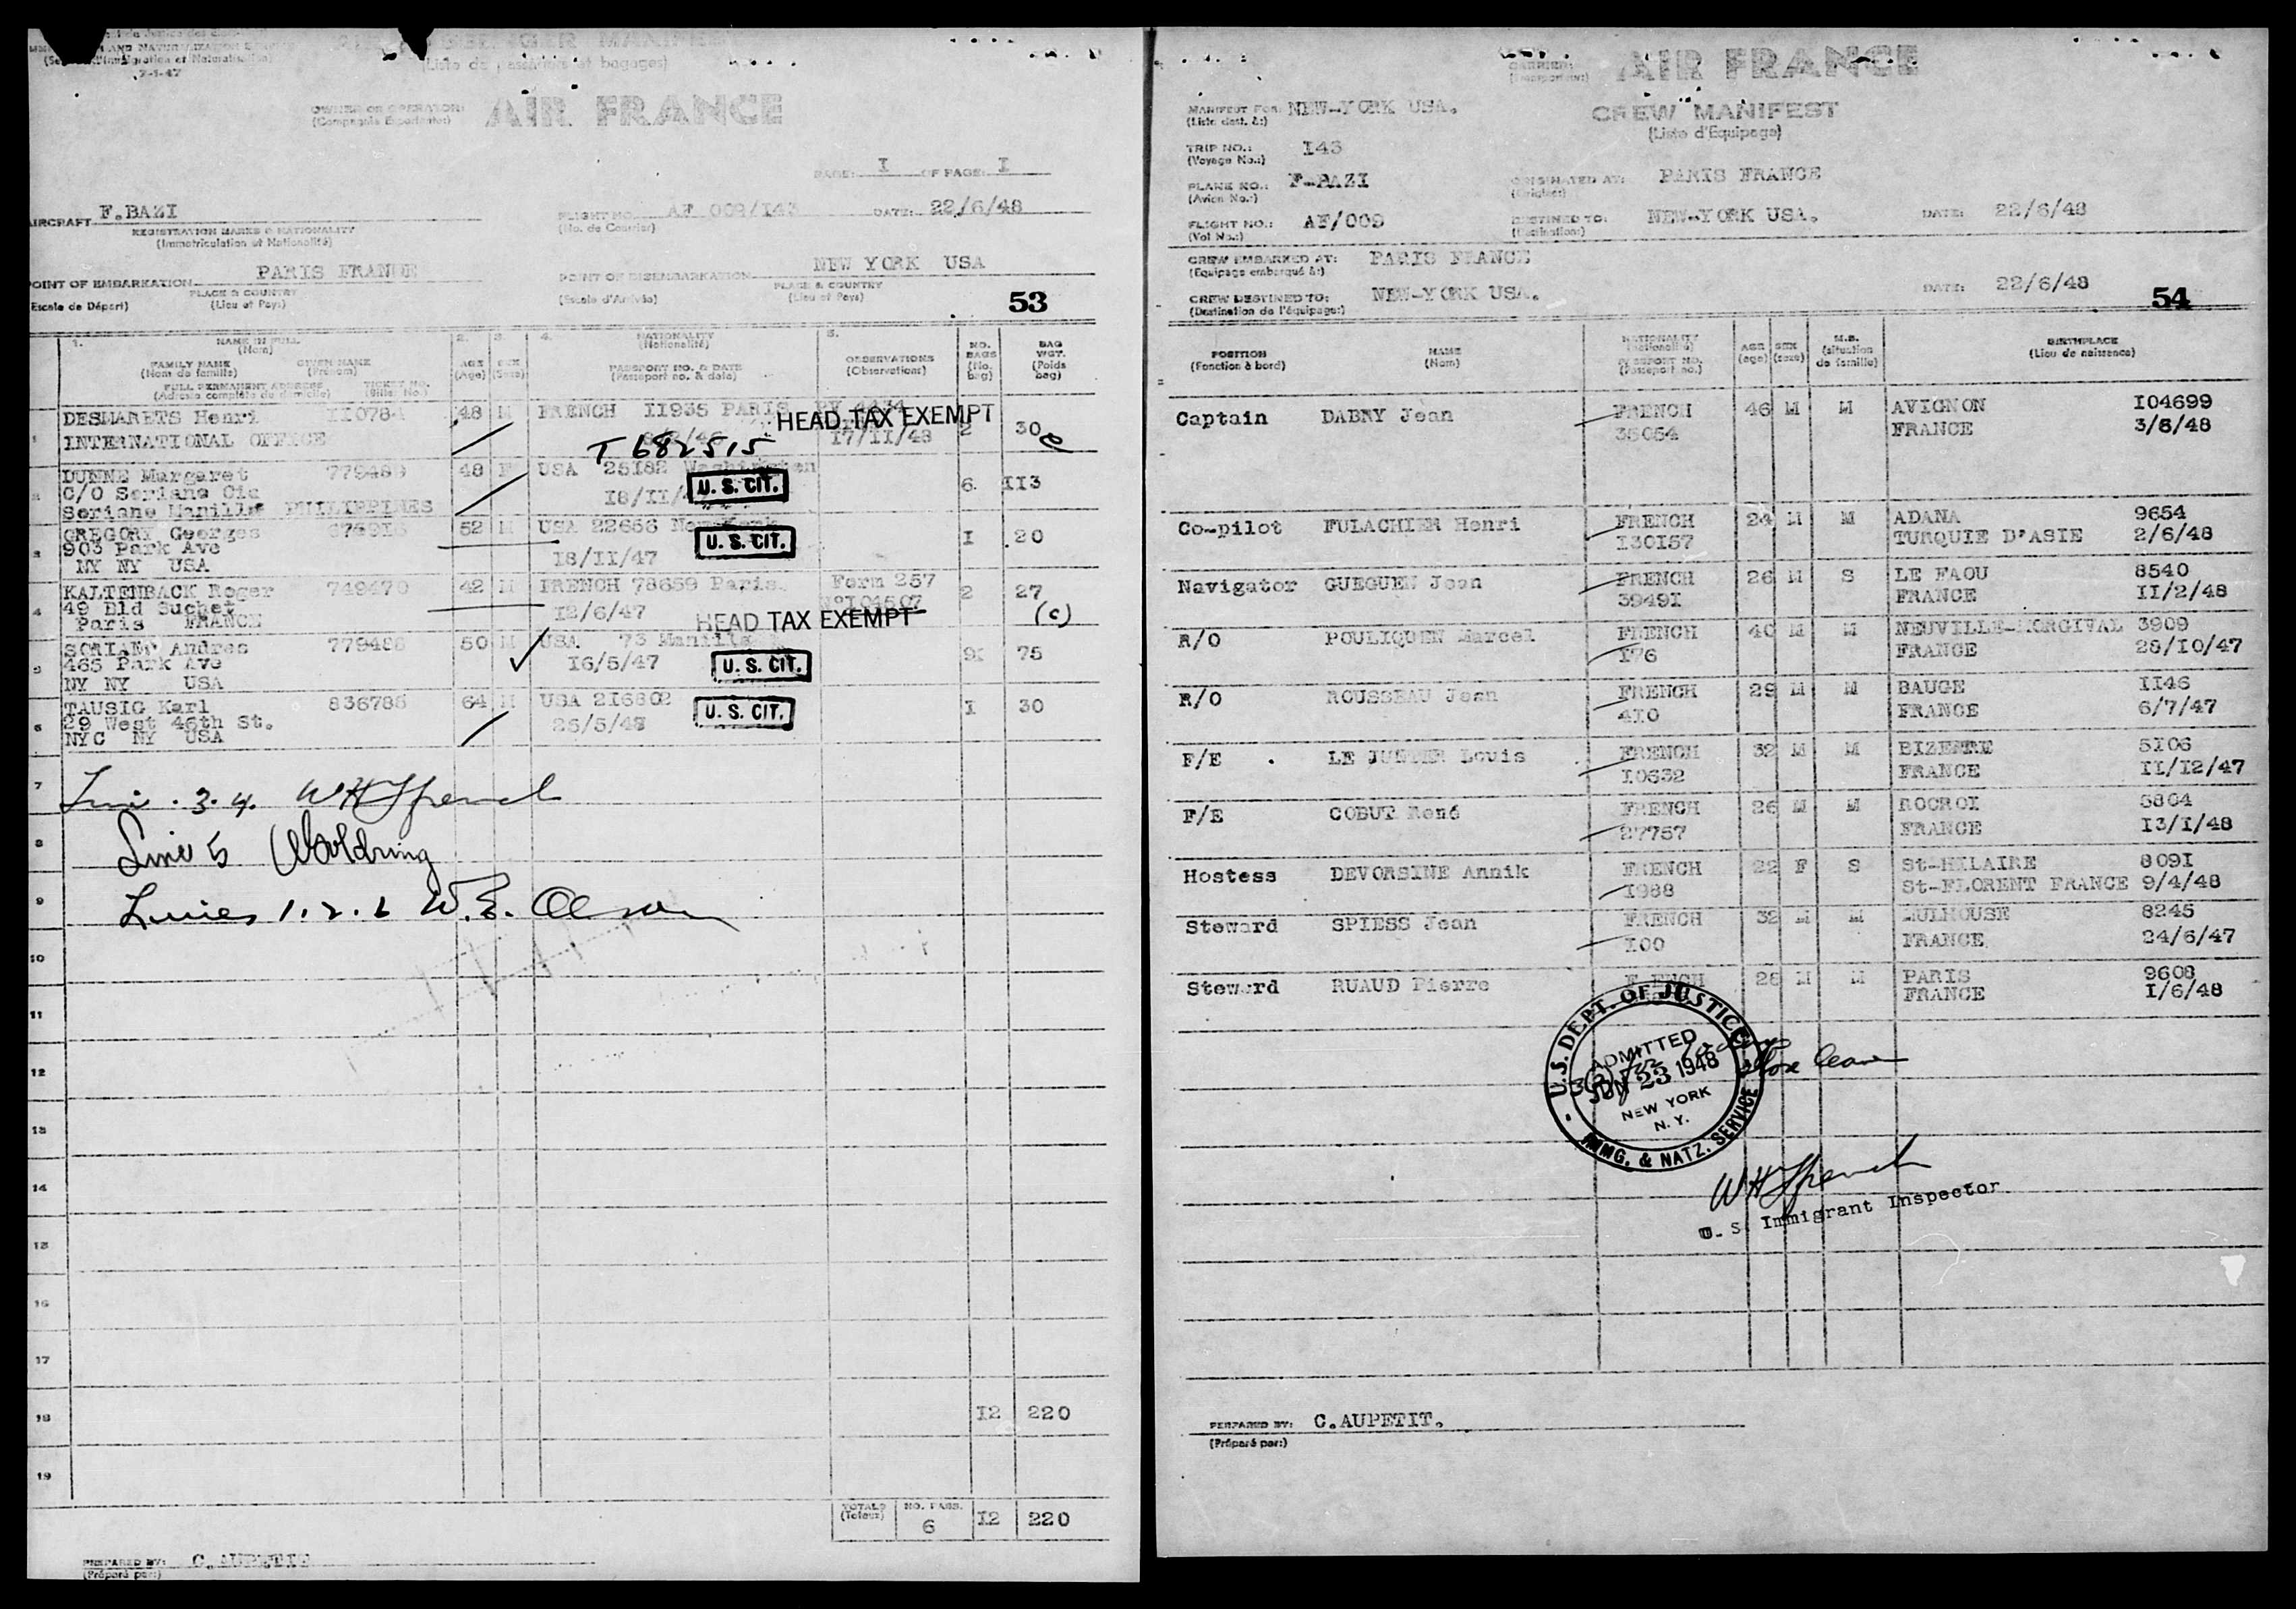 (Liste de passagers et bagages)
7-1-47
OWNER OR OPERATOR: AIR FRANCE
(Compagnie Exploitante)
PAGE: I OF PAGE: I
AIRCRAFT F.BAZI FLIGHT NO. AF 009/143 DATE: 22/6/48
REGISTRATION MARKS & NATIONALITY (No. de Courrier)
(Immatriculation et Nationalité)
POINT OF EMBARKATION PARIS FRANCE POINT OF DISEMBARKATION NEW YORK USA
PLACE & COUNTRY PLACE & COUNTRY
(Escale de Départ) (Lieu et Pays) (Escale d'Arrivée) (Lieu et Pays) 53
1. NAME IN FULL 2. 3. 4. NATIONALITY 5. NO. BAGS BAG WGT.
(Nom) (Nationalité)
FAMILY NAME GIVEN NAME AGE SEX OBSERVATIONS
(Nom de famille) (Prénom) (Age) (Sexe) PASSPORT NO. & DATE (Observations) (No. bag) (Poids bag)
FULL PERMANENT ADDRESS TICKET NO. (Passeport no. & date)
(Adresse complète du domicile) (Billet No.)
1 DESMARETS Henri 110784 48 M FRENCH 11935 PARIS HEAD TAX EXEMPT
INTERNATIONAL OFFICE 17/11/48 2 30
T 682515
2 DUNNE Margaret 779489 48 F USA 25182 Washington
C/O Soriano Cia 18/11/ U. S. CIT. 6 113
Soriano Manilla PHILIPPINES
3 GREGORY Georges 52 M USA 22666 New York
903 Park Ave U. S. CIT. I 20
NY NY USA 18/11/47
4 KALTENBACK Roger 749470 42 M FRENCH 78659 Paris Form 257 2 27
49 Bld Suchet 12/6/47 (c)
Paris FRANCE HEAD TAX EXEMPT
5 SORIANO Andres 779488 50 M USA 73 Manilla
465 Park Ave 16/5/47 U. S. CIT. 75
NY NY USA
6 TAUSIG Karl 836786 64 M USA 216802 I 30
29 West 46th St. U. S. CIT.
NYC NY USA
7 3.4. WHSpencel
8 Line 5 Goldring
9 Lines 1.2.6 W.E. Olson
10
11
12
13
14
15
16
17
18 12 220
19
TOTALS NO. PASS.
(Totaux) 6 12 220
PREPARED BY: C.AUPETIT
(Préparé par:)
CARRIER: AIR FRANCE
MANIFEST FOR: NEW-YORK USA. CREW MANIFEST
(Liste dest. à:) (Liste d'Equipage)
TRIP NO.: 143
(Voyage No.:)
PLANE NO.: F-BAZI ORIGINATED AT: PARIS FRANCE
(Avion No.:) (Origine:)
FLIGHT NO.: AF/009 DESTINED TO: NEW-YORK USA. DATE: 22/6/48
(Vol No.:) (Destination:)
CREW EMBARKED AT: PARIS FRANCE
(Equipage embarqué à:)
CREW DESTINED TO: NEW-YORK USA. DATE: 22/6/48 54
(Destination de l'équipage:)
POSITION NAME NATIONALITY AGE SEX M.S. BIRTHPLACE
(Fonction à bord) (Nom) (Nationalité) (age) (sexe) (situation de famille) (Lieu de naissance)
PASSPORT NO.
(Passeport no.)
Captain DABRY Jean FRENCH 46 M M AVIGNON 104699
35054 FRANCE 3/6/48
Co-pilot FULACHIER Henri FRENCH 24 M M ADANA 9654
130157 TURQUIE D'ASIE 2/6/48
Navigator GUEGUEN Jean FRENCH 26 M S LE FAOU 8540
39491 FRANCE 11/2/48
R/O POULIQUEN Marcel FRENCH 40 M M 3909
176 FRANCE 28/10/47
R/O ROUSSEAU Jean FRENCH 29 M M BAUGE 1146
410 FRANCE 6/7/47
F/E Louis FRENCH 32 M M BIZERTE 5106
10632 FRANCE 11/12/47
F/E COBUT René FRENCH 26 M M ROCROI
27757 FRANCE 13/1/48
Hostess DEVORSINE Annik FRENCH 22 F S St-HILAIRE 8091
1988 St-FLORENT FRANCE 9/4/48
Steward SPIESS Jean FRENCH 32 M M MULHOUSE 8245
100 FRANCE 24/6/47
Steward RUAUD Pierre FRENCH 28 M M PARIS 9608
FRANCE 1/6/48
U.S. DEPT. OF JUSTICE
ADMITTED
JUN 23 1948
NEW YORK
N. Y.
IMMG. & NATZ. SERVICE
shore leave
WHSpencel
U. S. Immigrant Inspector
PREPARED BY: C.AUPETIT.
(Préparé par:)